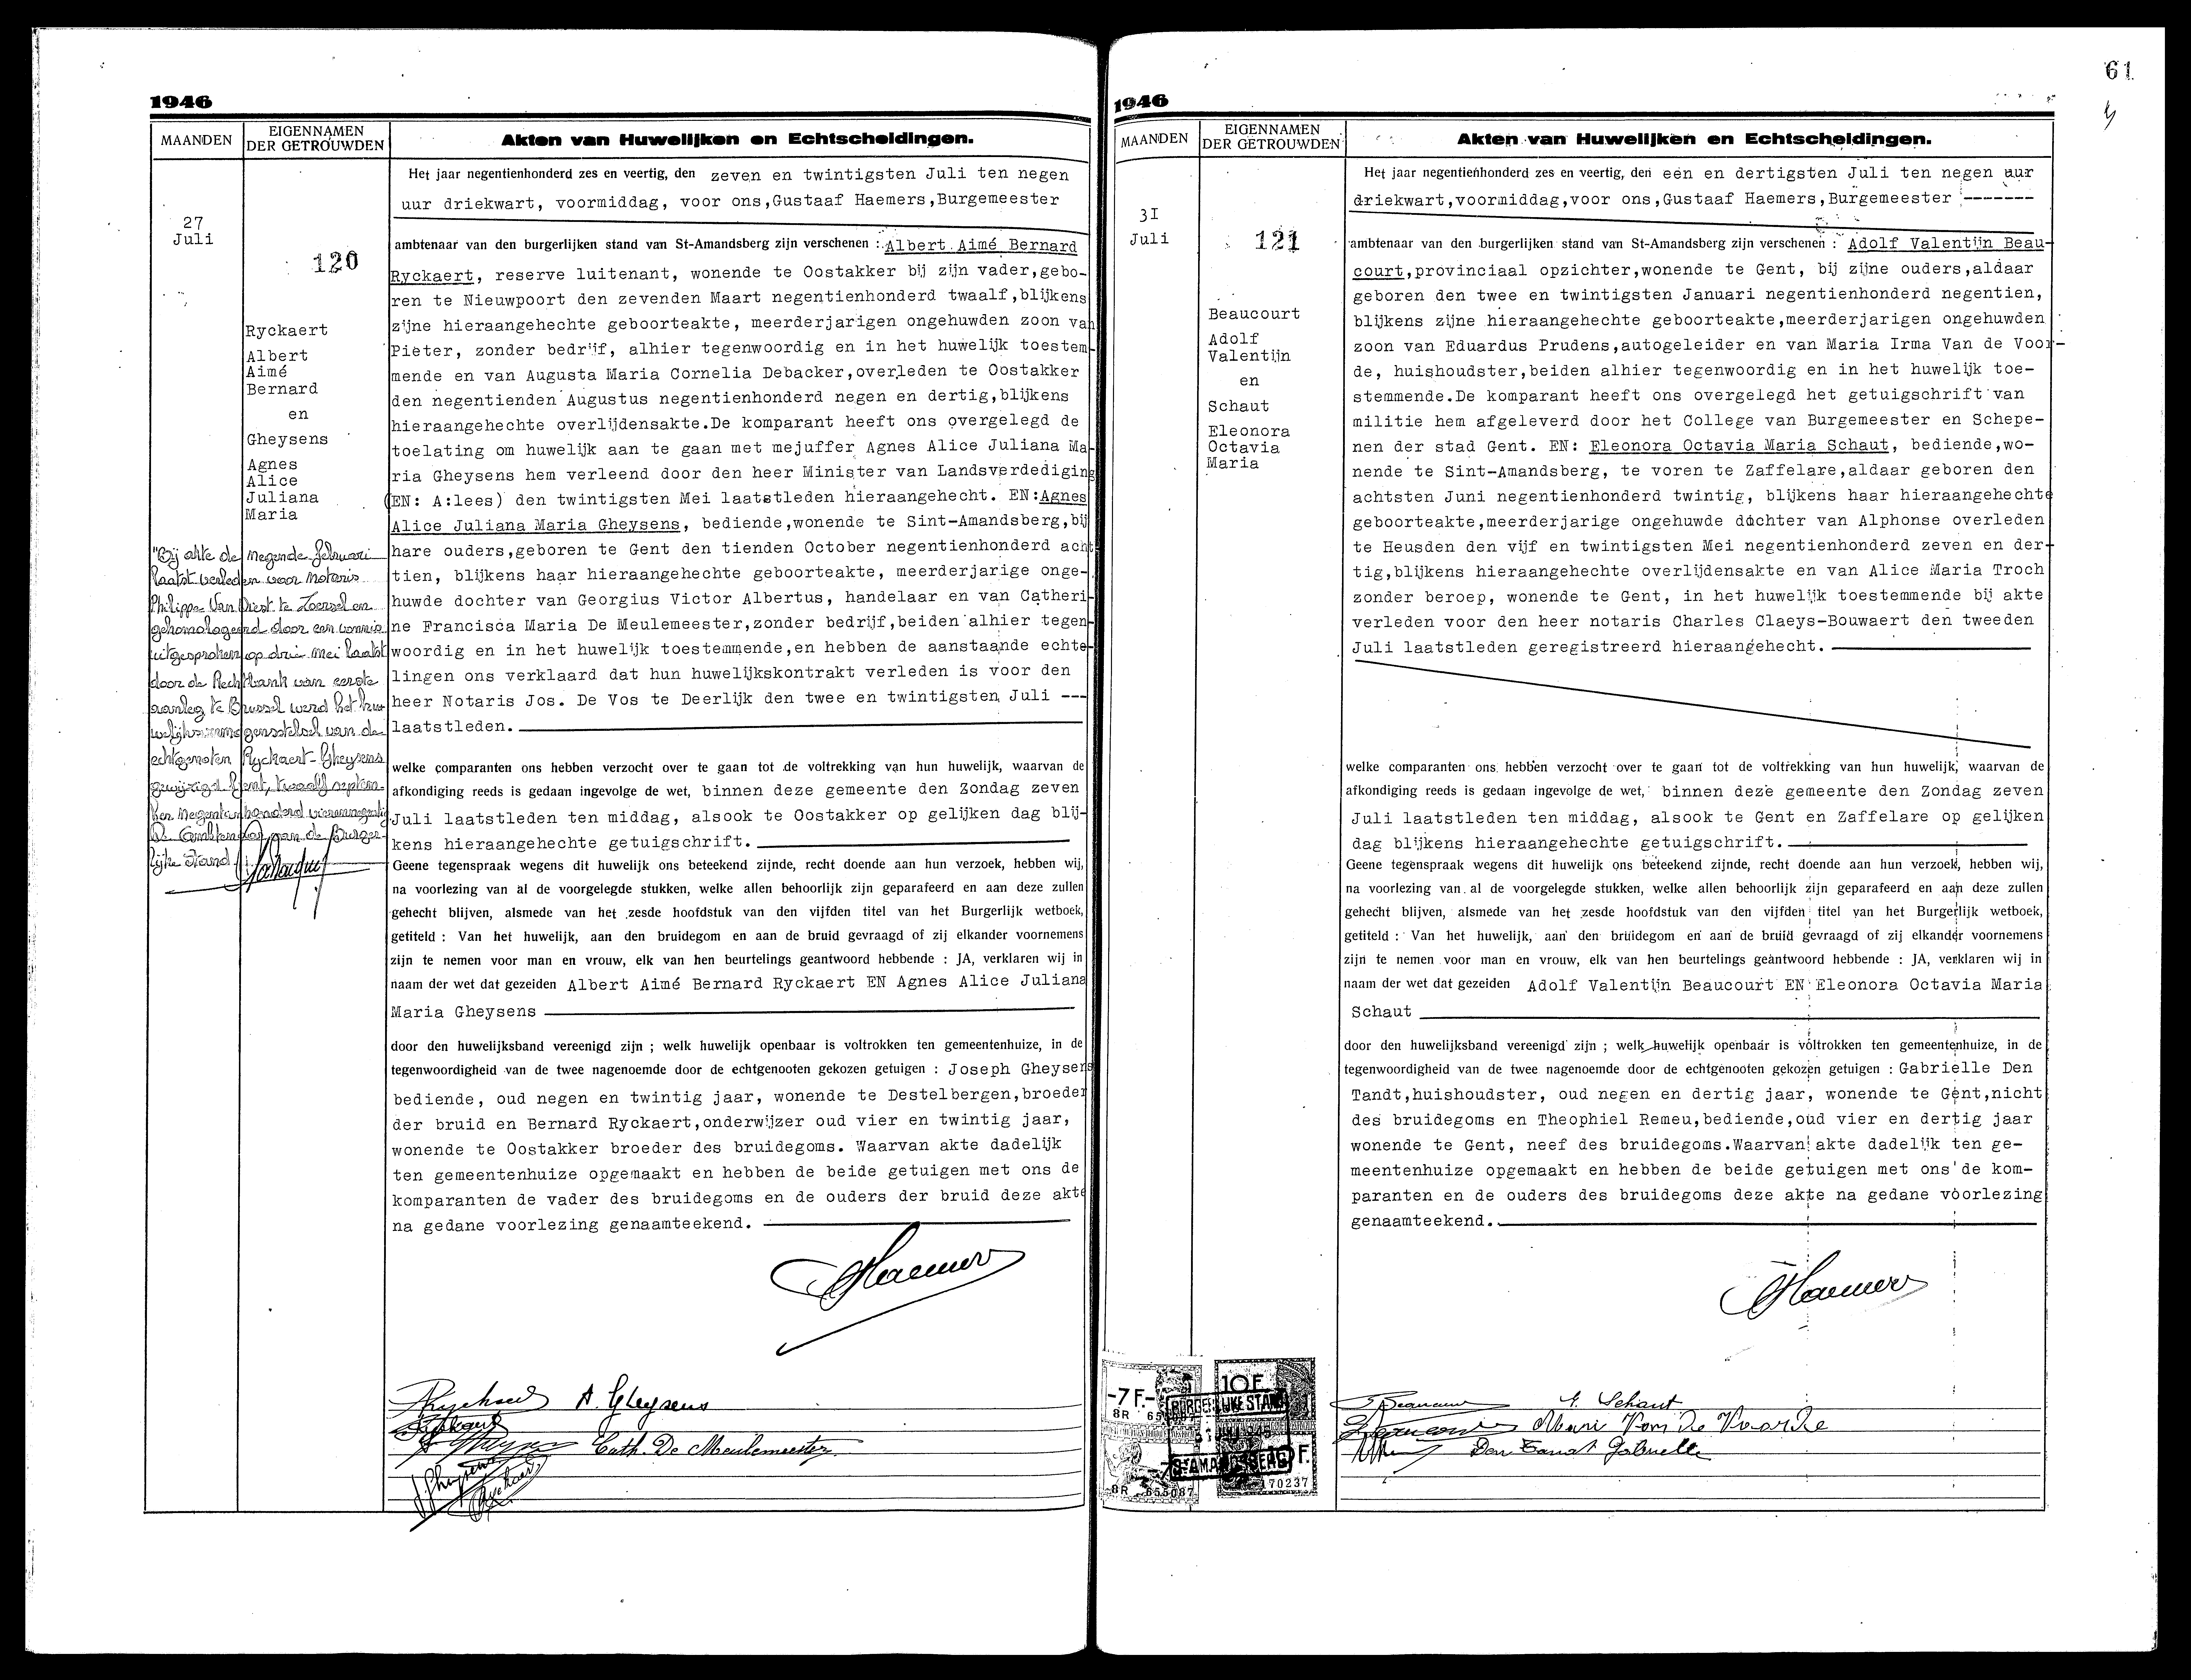 1946
MAANDEN
EIGENNAMEN
DER GETROUWDEN
Akten van Huwelijken en Echtscheidingen.
27
Juli
120
Ryckaert
Albert
Aimé
Bernard
en
Gheysens
Agnes
Alice
Juliana
Maria
"Bij akte de negende februari
laatst verleden voor Notaris
Philippe Van Diest te Zoersel en
gehomologeerd door een vonnis
uitgesproken op drie Mei laatst
door de Rechtbank van eerste
aanleg te Brussel werd het hu-
welijksvermogensstelsel van de
echtgenoten Ryckaert-Gheysens
gewijzigd. Gent, twaalf septem-
ber negentienhonderd
De Ambtenaar van de Burger-
lijke Stand
Het jaar negentienhonderd zes en veertig, den zeven en twintigsten Juli ten negen
uur driekwart, voormiddag, voor ons,Gustaaf Haemers,Burgemeester
ambtenaar van den burgerlijken stand van St-Amandsberg zijn verschenen : Albert Aimé Bernard
Ryckaert, reserve luitenant, wonende te Oostakker bij zijn vader,gebo-
ren te Nieuwpoort den zevenden Maart negentienhonderd twaalf,blijkens
zijne hieraangehechte geboorteakte, meerderjarigen ongehuwden zoon van
Pieter, zonder bedrijf, alhier tegenwoordig en in het huwelijk toestem-
mende en van Augusta Maria Cornelia Debacker,overleden te Oostakker
den negentienden Augustus negentienhonderd negen en dertig,blijkens
hieraangehechte overlijdensakte.De komparant heeft ons overgelegd de
toelating om huwelijk aan te gaan met mejuffer Agnes Alice Juliana Ma-
ria Gheysens hem verleend door den heer Minister van Landsverdediging
(EN: A:lees) den twintigsten Mei laatstleden hieraangehecht. EN:Agnes
Alice Juliana Maria Gheysens, bediende,wonende te Sint-Amandsberg,bij
hare ouders,geboren te Gent den tienden October negentienhonderd acht
tien, blijkens haar hieraangehechte geboorteakte, meerderjarige onge-
huwde dochter van Georgius Victor Albertus, handelaar en van Catheri-
ne Francisca Maria De Meulemeester,zonder bedrijf,beiden alhier tegen-
woordig en in het huwelijk toestemmende,en hebben de aanstaande echte-
lingen ons verklaard dat hun huwelijkskontrakt verleden is voor den
heer Notaris Jos. De Vos te Deerlijk den twee en twintigsten Juli ---
laatstleden.
welke comparanten ons hebben verzocht over te gaan tot de voltrekking van hun huwelijk, waarvan de
afkondiging reeds is gedaan ingevolge de wet, binnen deze gemeente den Zondag zeven
Juli laatstleden ten middag, alsook te Oostakker op gelijken dag blij-
kens hieraangehechte getuigschrift.
Geene tegenspraak wegens dit huwelijk ons beteekend zijnde, recht doende aan hun verzoek, hebben wij,
na voorlezing van al de voorgelegde stukken, welke allen behoorlijk zijn geparafeerd en aan deze zullen
gehecht blijven, alsmede van het zesde hoofdstuk van den vijfden titel van het Burgerlijk wetboek,
getiteld : Van het huwelijk, aan den bruidegom en aan de bruid gevraagd of zij elkander voornemens
zijn te nemen voor man en vrouw, elk van hen beurtelings geantwoord hebbende : JA, verklaren wij in
naam der wet dat gezeiden Albert Aimé Bernard Ryckaert EN Agnes Alice Juliana
Maria Gheysens
door den huwelijksband vereenigd zijn ; welk huwelijk openbaar is voltrokken ten gemeentenhuize, in de
tegenwoordigheid van de twee nagenoemde door de echtgenooten gekozen getuigen : Joseph Gheysens
bediende, oud negen en twintig jaar, wonende te Destelbergen,broeder
der bruid en Bernard Ryckaert,onderwijzer oud vier en twintig jaar,
wonende te Oostakker broeder des bruidegoms. Waarvan akte dadelijk
ten gemeentenhuize opgemaakt en hebben de beide getuigen met ons de
komparanten de vader des bruidegoms en de ouders der bruid deze akte
na gedane voorlezing genaamteekend.
Haemers
Ryckaert A. Gheysens
Cath. De Meulemeester
J. Gheysens
Ryckaert
61
1946
MAANDEN
EIGENNAMEN
DER GETROUWDEN
Akten van Huwelijken en Echtscheidingen.
3I
Juli
121
Beaucourt
Adolf
Valentijn
en
Schaut
Eleonora
Octavia
Maria
Het jaar negentienhonderd zes en veertig, den een en dertigsten Juli ten negen uur
driekwart,voormiddag,voor ons,Gustaaf Haemers,Burgemeester -------
ambtenaar van den burgerlijken stand van St-Amandsberg zijn verschenen : Adolf Valentijn Beau-
court,provinciaal opzichter,wonende te Gent, bij zijne ouders,aldaar
geboren den twee en twintigsten Januari negentienhonderd negentien,
blijkens zijne hieraangehechte geboorteakte,meerderjarigen ongehuwden
zoon van Eduardus Prudens,autogeleider en van Maria Irma Van de Voor-
de, huishoudster,beiden alhier tegenwoordig en in het huwelijk toe-
stemmende.De komparant heeft ons overgelegd het getuigschrift van
militie hem afgeleverd door het College van Burgemeester en Schepe-
nen der stad Gent. EN: Eleonora Octavia Maria Schaut, bediende,wo-
nende te Sint-Amandsberg, te voren te Zaffelare,aldaar geboren den
achtsten Juni negentienhonderd twintig, blijkens haar hieraangehechte
geboorteakte,meerderjarige ongehuwde dochter van Alphonse overleden
te Heusden den vijf en twintigsten Mei negentienhonderd zeven en der-
tig,blijkens hieraangehechte overlijdensakte en van Alice Maria Troch
zonder beroep, wonende te Gent, in het huwelijk toestemmende bij akte
verleden voor den heer notaris Charles Claeys-Bouwaert den tweeden
Juli laatstleden geregistreerd hieraangehecht.
welke comparanten ons hebben verzocht over te gaan tot de voltrekking van hun huwelijk, waarvan de
afkondiging reeds is gedaan ingevolge de wet, binnen deze gemeente den Zondag zeven
Juli laatstleden ten middag, alsook te Gent en Zaffelare op gelijken
dag blijkens hieraangehechte getuigschrift.
Geene tegenspraak wegens dit huwelijk ons beteekend zijnde, recht doende aan hun verzoek, hebben wij,
na voorlezing van al de voorgelegde stukken, welke allen behoorlijk zijn geparafeerd en aan deze zullen
gehecht blijven, alsmede van het zesde hoofdstuk van den vijfden titel van het Burgerlijk wetboek,
getiteld : Van het huwelijk, aan den bruidegom en aan de bruid gevraagd of zij elkander voornemens
zijn te nemen voor man en vrouw, elk van hen beurtelings geantwoord hebbende : JA, verklaren wij in
naam der wet dat gezeiden Adolf Valentijn Beaucourt EN Eleonora Octavia Maria
Schaut
door den huwelijksband vereenigd zijn ; welk huwelijk openbaar is voltrokken ten gemeentenhuize, in de
tegenwoordigheid van de twee nagenoemde door de echtgenooten gekozen getuigen : Gabrielle Den
Tandt,huishoudster, oud negen en dertig jaar, wonende te Gent,nicht
des bruidegoms en Theophiel Remeu,bediende,oud vier en dertig jaar
wonende te Gent, neef des bruidegoms.Waarvan akte dadelijk ten ge-
meentenhuize opgemaakt en hebben de beide getuigen met ons de kom-
paranten en de ouders des bruidegoms deze akte na gedane voorlezing
genaamteekend.
Haemers
-7F.-
10F.
BURGERLIJKE STAND
ST AMANDSBERG
8R 655087
170237
E. Schaut
Marie Van De Voorde
Den Tandt Gabrielle